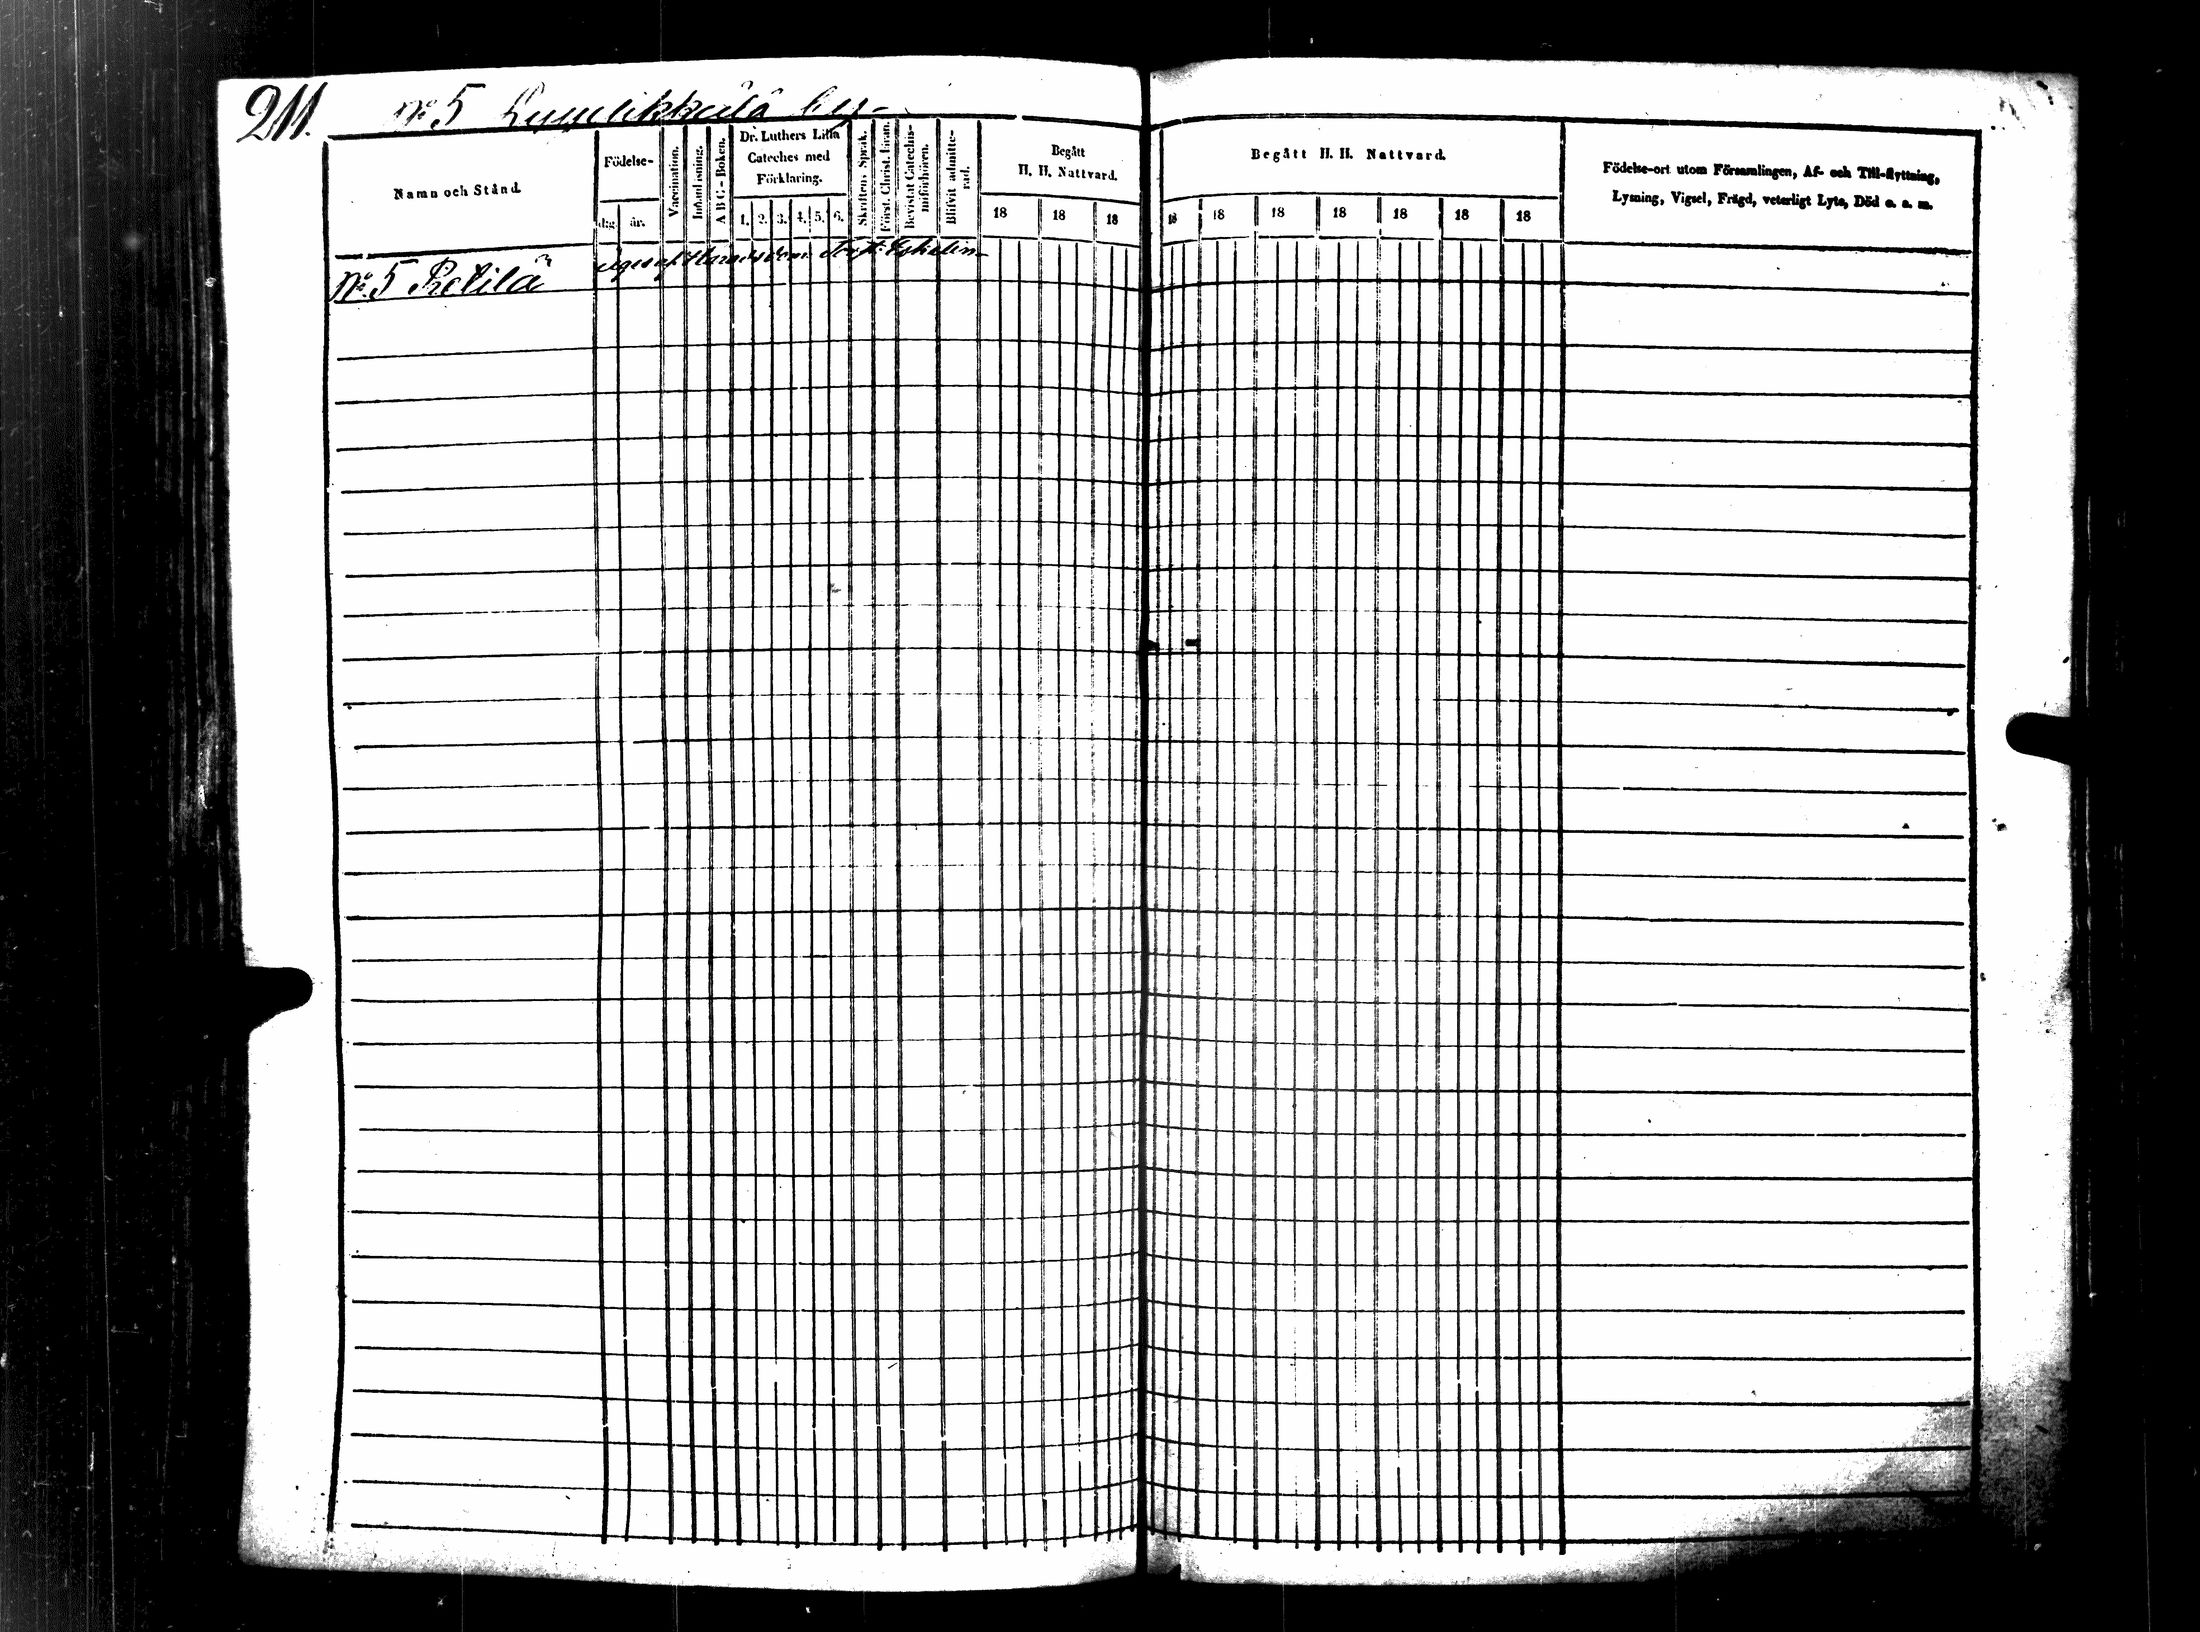 211.
No 5 by
Namn och Stånd.
Födelse-
dig
år.
Vaccination.
Innanläsning.
A B C - Boken.
Dr. Luthers Lilla
Cateches med
Förklaring.
1. 2. 3. 4. 5. 6.
Skriftens Språk.
Först. Christ. Läran.
Bevistat Catechis-
miförhören.
Blifvit admitte-
rad.
Begått
H. H. Nattvard.
18 18 18
Begått H. H. Nattvard.
18 18 18 18 18 18 18
Födelse-ort utom Församlingen, Af- och Till-flyttning,
Lysning, Vigsel, Frägd, veterligt Lyte, Död o. s. m.
No 5
äges af